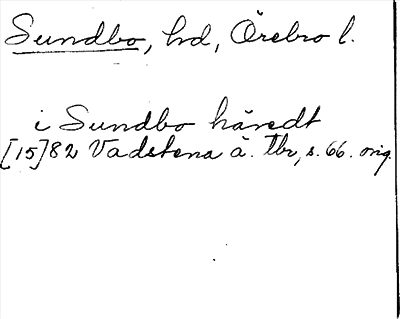 Sundbo, hd, Örebro l.
i Sundbo häredt
[15]82 Vadstena ä. tbr, s. 66. orig.